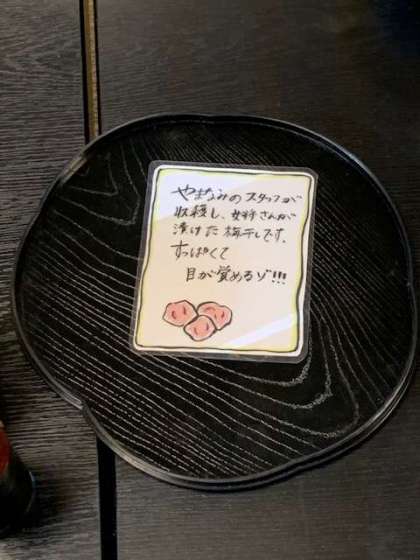 やまなみのスタッフが
収穫し、女将さんが
漬けた梅干しです。
すっぱくて
目が覚めるゾ!!!